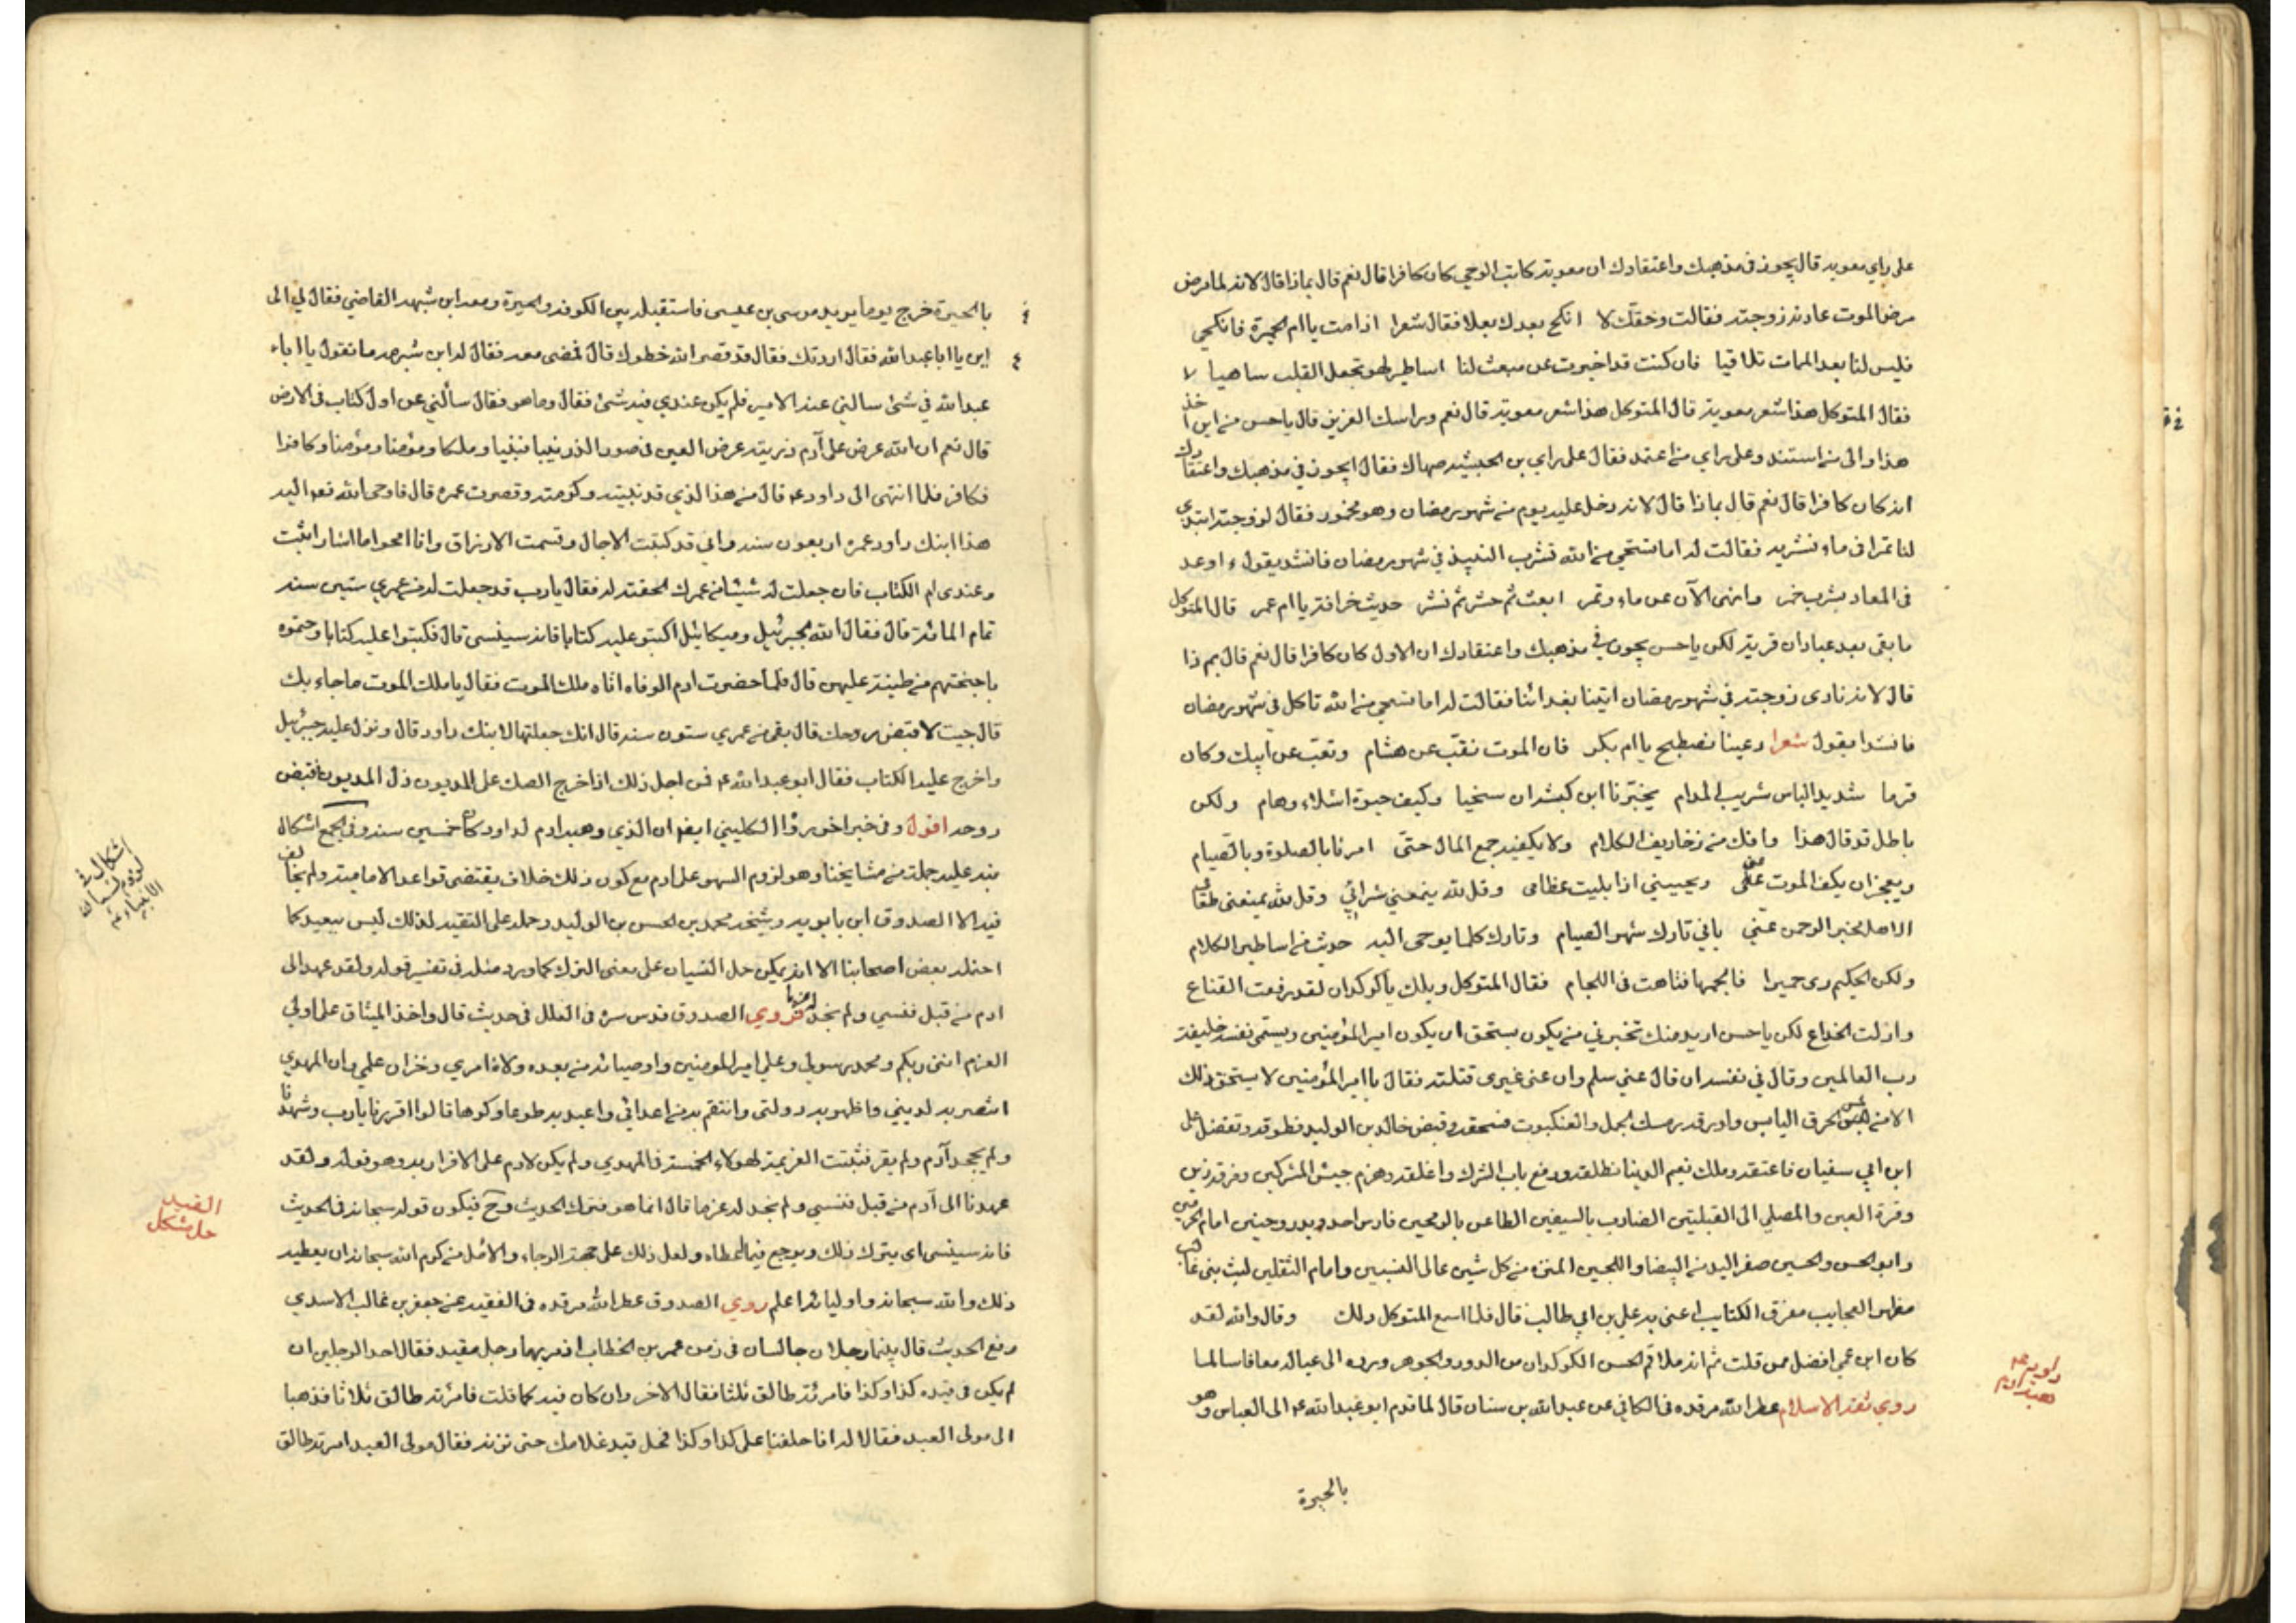 على راي معويه قال يجوز في مذهبك واعتقادك ان معوية كاتب الوحي كان كافرا قال نعم قال بماذا قال لانه لما مرض
مرض الموت عادته زوجته فقالت وحقك لا انكح بعدك بعلا فقال شعرا اذا مت يا ام الحميرة فانكحي
فليس لنا بعد الممات تلاقيا فان كنت قد اخبرت عن مبعث لنا اساطير لهو تجعل القلب ساهيا
فقال المتوكل هذا شعر معوية قال المتوكل هذا شعر معوية قال نعم وبراسك العزيز قال يا حسن من اين اخذ
هذا والى من استند وعلى راي من اعتمد فقال على راي بن الحبشيه صهاك فقال ايجوز في مذهبك واعتقادك
انه كان كافرا قال نعم قال بماذا قال لانه دخل عليه يوم من شهر رمضان وهو مخمور فقال لزوجته ابتدي
لنا تمرا في ماء نشربه فقالت له اما تستحي من الله تشرب النبيذ في شهر رمضان فانشد يقول اوعد
في المعاد بشرب خمر وانهى الآن عن ماء وتمر ابعث ثم حشر ثم نشر حديث خرافة يا ام عمر قال المتوكل
ما بقى بعد عبادان قرية لكن يا حسن يجوز في مذهبك واعتقادك ان الاول كان كافرا قال نعم قال بم ذا
قال لانه نادى زوجته في شهر رمضان ايتينا بغدائنا فقالت له اما تستحي من الله تاكل في شهر رمضان
فانشدا يقول شعرا دعينا نصطبح يا ام بكر فان الموت نقب عن هشام ونقب عن ابيك وكان
قرما شديد الباس شريب المدام يخبرنا ابن كبشه ان سنحيا وكيف حيوة اشلاء وهام ولكن
باطل قد قال هذا وافك من زخاريف الكلام ولا يكفيه جمع المال حتى امرنا بالصلوة وبالصيام
ويعجز ان يكف الموت عني ويحييني اذا بليت عظامى وقل لله يمنعني شرابي وقل لله يمنعنى طعامي
الا هل مخبر الرحمن عني باني تارك شهر الصيام وتارك كلما يوحى اليه حديث من اساطير الكلام
ولكن الحكيم رى حميرا فالجمها فتاهت في اللجام فقال المتوكل ويلك يا كوكدان لقد رفعت القناع
وازلت الخداع لكن يا حسن اريد منك تخبرني من يكون يستحق ان يكون امير المؤمنين ويسمى نفسه خليفة
رب العالمين وقال في نفسه ان قال عني سلم وان عنى غيرى قتلته فقال يا امير المؤمنين لا يستحق ذلك
ابن ابي سفيان فاعتقه وملك نعيم الدينا فطلقه ودفع باب الشرك واغلقه وهزم جيش المشركين وفرقه زين
وقرة العين والمصلي الى القبلتين الضارب بالسيفين الطاعن بالرمحين فارس احد وبدر وحنين امام الحرمين
وابو الحسن والحسين صفر اليد من البيضا واللجين المنزه من كل شين عالى النسبين وامام الثقلين ليث بني غالب
مظهر العجايب مفرق الكتايب اعنى به علي بن ابي طالب قال فلما سمع المتوكل ذلك وقال والله لقد
كان ابن عمي افضل ممن قلت ثم انه ملا فم الحسن الكوكدان من الدرر والجوهر ورده الى عياله معافا سالما
روي ثقة الاسلام عطر الله مرقده في الكافي عن عبد الله بن سنان قال لما قدم ابو عبد الله ع الى العباس وهو
بالحيرة
داود ع
هبة ادم
بالحيرة خرج يوما يريد موسى بن عيسى فاستقبله بين الكوفه والحيرة ومعه ابن شبهه القاضي فقال له الى
اين يا ابا عبد الله فقال اردتك فقال قد قصر الله خطوك قال فمضى معه فقال له ابن شبرمه ما تقول يا ابا
عبد الله في شئ سالني عنه الامير فلم يكن عندي فيه شئ فقال وما هو فقال سألني عن اول كتاب في الارض
قال نعم ان الله عرض على آدم ذريته عرض العين في صور الذر نبيا فنبيا وملكا ومؤمنا ومؤمنا وكافرا
فكافر فلما انتهى الى داود ع قال من هذا الذي قد نبيته وكرمته وقصرت عمره قال فاوحى الله فعه اليه
هذا ابنك داود عمره اربعون سنه واني قد كتبت الاجال وقسمت الارزاق وانا امحو ما اشاء واثبت
وعندى ام الكتاب فان جعلت له شيئا من عمرك الحقته له فقال يا رب قد جعلت له من عمري ستين سنه
تمام المائة قال فقال الله لجبرئيل وميكائيل اكتبو عليه كتابا فانه سينسى قال فكتبوا عليه كتابا وختموه
باجنحتهم من طينة عليين قال فلما حضرت ادم الوفاه اتاه ملك الموت فقال يا ملك الموت ما جاء بك
قال جيت لاقبض روحك قال بقى من عمري ستون سنه قال انك جعلتها لابنك داود قال ونزل عليه جبرئيل
واخرج عليه الكتاب فقال ابو عبد الله ع فمن اجل ذلك اذا خرج الصك على المديون ذل المديون فقبض
روحه اقول وفي خبر اخر رواه الكليني ايضا ان الذي وهبه ادم لداود كان خمسين سنه وفي الجمع اشكال
نبه عليه جملة من مشايخنا وهو لزوم السهو على ادم مع كون ذلك خلاف مقتضى قواعد الاماميه ولم يخالف
فيه الا الصدوق ابن بابويه وشيخه محمد بن الحسن بن الوليد وحمله على التقيه لذلك ليس ببعيد كما
احتمله بعض اصحابنا الا انه يمكن حمل النسيان على معنى الترك كما ورد مثله في تفسير قوله ولقد عهدنا الى
ادم من قبل فنسي ولم نجد له عزما فروي الصدوق قدس سره في العلل في حديث قال واخذ الميثاق على اولي
العزم انني ربكم ومحمد رسولي وعلي امير المومنين واوصيائه من بعده ولاة امري وخزان علمي وان المهدي
انتصر به لديني واظهر به دولتى وانتقم به من اعدائي واعبد به طوعا وكرها قالوا اقررنا يا رب وشهدنا
ولم يجحد آدم ولم يقر فثبتت العزيمة لهولاء الخمسة في المهدي ولم يكن لادم على الاقرار به وهو قوله ولقد
عهدنا الى آدم من قبل فنسي ولم نجد له عزما قال انما هو فترك الحديث وح فيكون قوله سبحانه في الحديث
فانه سينسى اى يترك ذلك ويرجع فيما اعطاه ولعل ذلك على جهة الرجاء والامل من كرم الله سبحانه ان يعطيه
ذلك والله سبحانه واوليائه اعلم روي الصدوق عطر الله مرقده في الفقيه عن جعفر بن غالب الاسدي
رفع الحديث قال بينما رجلان جالسان في زمن عمر بن الخطاب اذ مر بهما رجل مقيد فقال احد الرجلين ان
لم يكن في قيده كذا وكذا فامرئته طالق ثلثا فقال الاخر وان كان فيه كما قلت فامرئته طالق ثلاثا فذهبا
الى مولى العبد فقالا له انا حلفنا على كذا وكذا فحل قيد غلامك حتى نزنه فقال مولى العبد امرته طالق
اشكال في
لزوم النسيان
الانبياء ع
القيد
حل مشكل